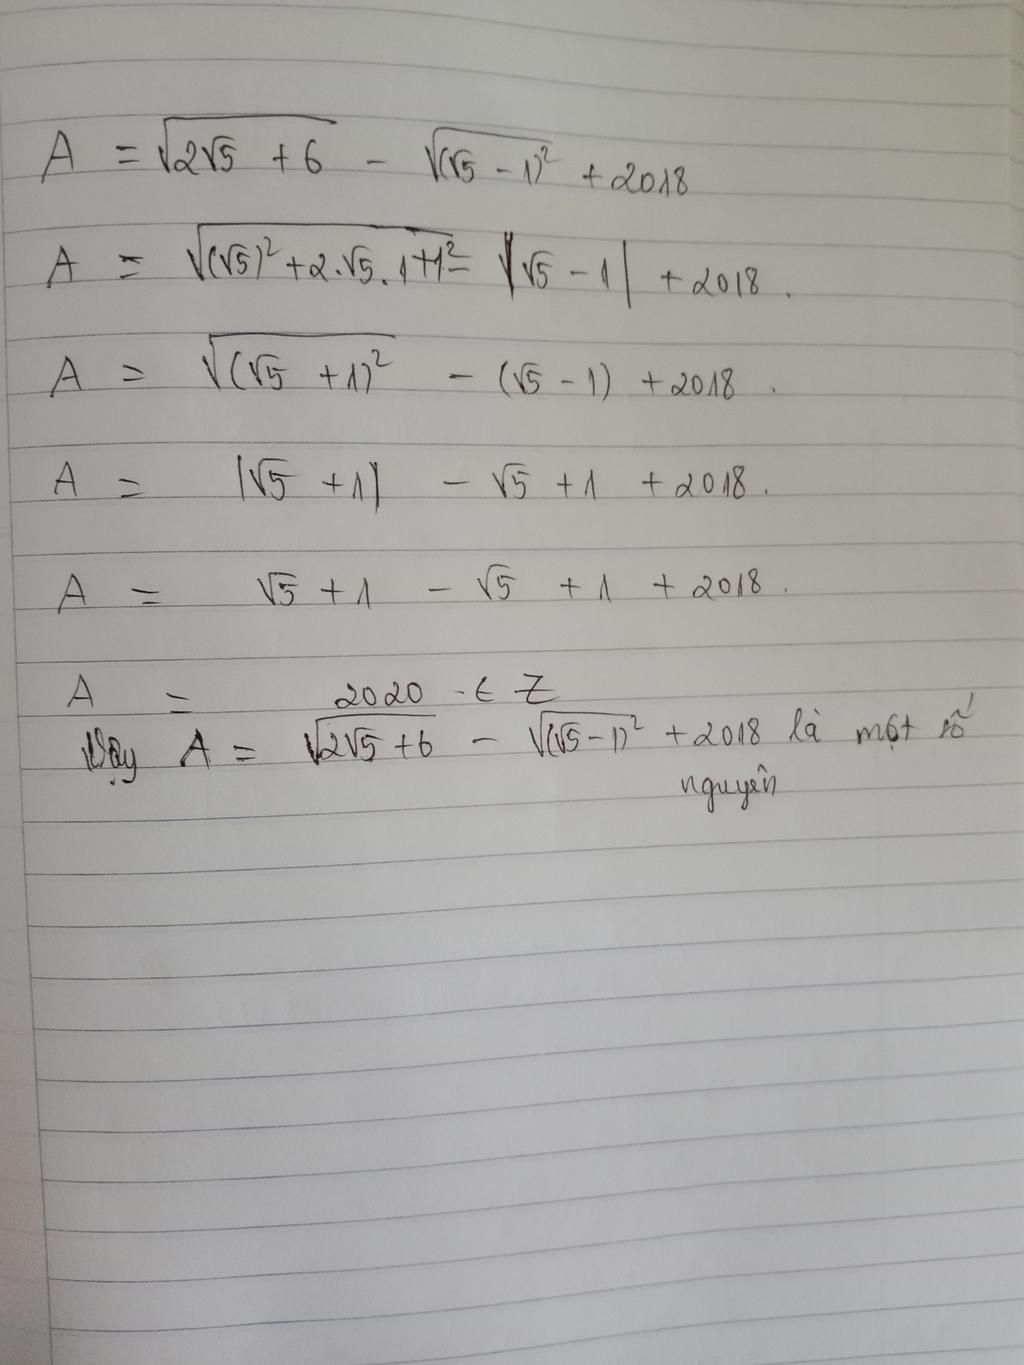 A = √(2√5 + 6) - √((√5 - 1)²) + 2018
A = √((√5)² + 2.√5.1 + 1²) - |√5 - 1| + 2018.
A = √((√5 + 1)²) - (√5 - 1) + 2018.
A = |√5 + 1| - √5 + 1 + 2018.
A = √5 + 1 - √5 + 1 + 2018.
A = 2020 ∈ Z
Vậy A = √(2√5 + 6) - √((√5 - 1)²) + 2018 là một số
nguyên